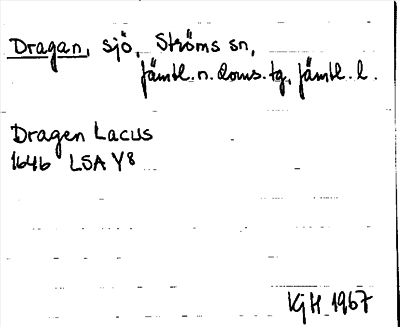 Dragan, sjö, Ströms sn,
Jämtl. n. doms. tg, Jämtl. l.
Dragen Lacus
1646 LSA Y8
KgH 1967